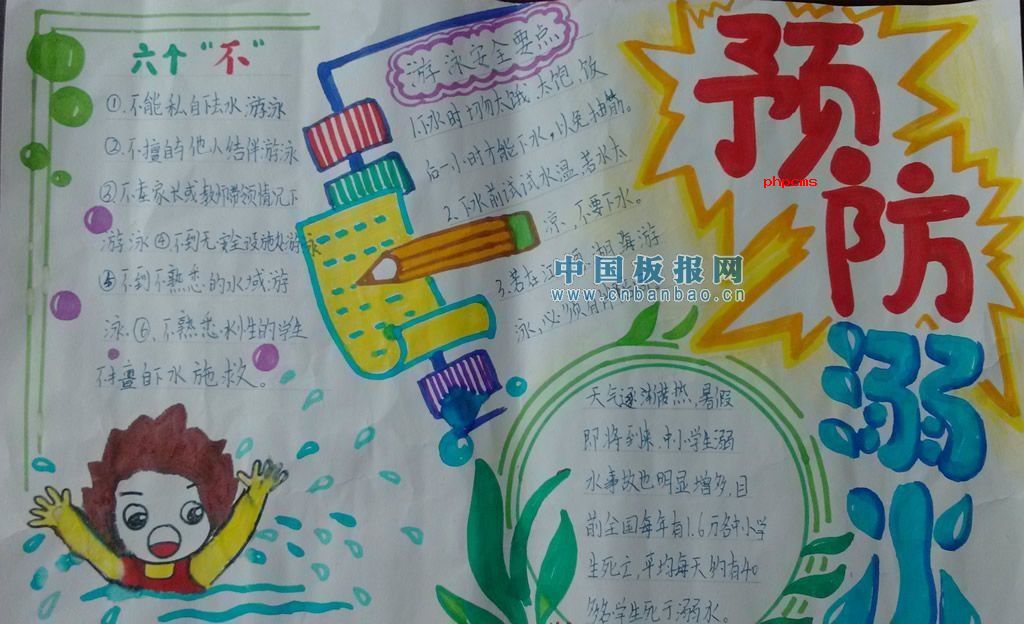 六个“不”
①.不能私自下水游泳
②.不擅自与他人结伴游泳
③不在家长或教师带领情况下
游泳④不到无安全设施处游泳
⑤不到不熟悉的水域游
泳.⑥.不熟悉水性的学生
不擅自下水施救。
游泳安全要点
1.下水时切勿太饿、太饱,饭
后一小时才能下水,以免抽筋。
2.下水前试试水温,若水太
凉,不要下水。
3.若在江河湖海游
泳,必须有
预防溺水
phpcms
中国板报网
www.cnbanbao.cn
天气逐渐炎热,暑假
即将到来.中小学生溺
水事故也明显增多,目
前全国每年有1.6万名中小学
生死亡,平均每天约有40
多名学生死于溺水。